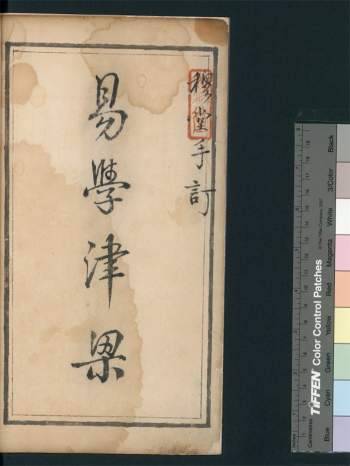 穆堂手訂
易學津梁
TIFFEN Color Control Patches
Blue
Cyan
Green
Yellow
Red
Magenta
White
3/Color
Black